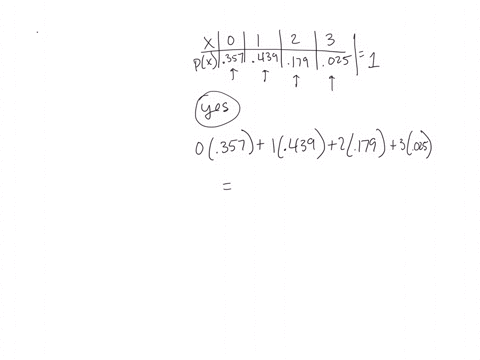 x | 0 | 1 | 2 | 3
p(x) | .357 | .439 | .179 | .025 | = 1
yes
0(.357) + 1(.439) + 2(.179) + 3(.025)
=